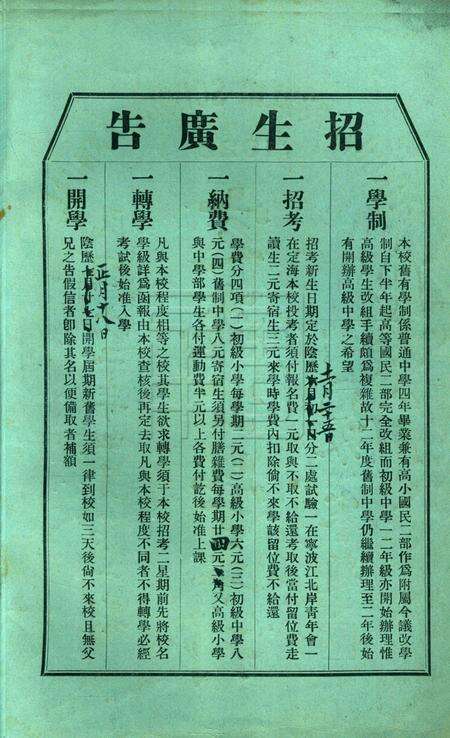 招生廣告
一學制
本校舊有學制係普通中學四年畢業兼有高小國民二部作爲附屬今議改學
制自下半年起高等國民二部完全改組而初級中學一二年級亦開始辦理惟
高級學生改組手續頗爲複雜故十二年度舊制中學仍繼續辦理至二年後始
有開辦高級中學之希望
一招考
招考新生日期定於陰歷十二月二十五日分二處試驗一在寧波江北岸青年會一
在定海本校投考者須付報名費一元取與不取不給還考取後當付留位費走
讀生二元寄宿生三元來學時學費內扣除倘不來學該留位費不給還
一納費
學費分四項(一)初級小學每學期二元(二)高級小學六元(三)初級中學八
元(四)舊制中學八元寄宿生須另付膳雜費每學期廿四元 角又高級小學
與中學部學生各付運動費半元以上各費付訖後始准上課
一轉學
凡與本校程度相等之校其學生欲求轉學須于本校招考二星期前先將校名
學級詳爲函報由本校查核後再定去取凡與本校程度不同者不得轉學必經
考試後始准入學
一開學
陰歷正月十八日開學屆期新舊學生須一律到校如三天後倘不來校且無父
兄之告假信者卽除其名以便備取者補額